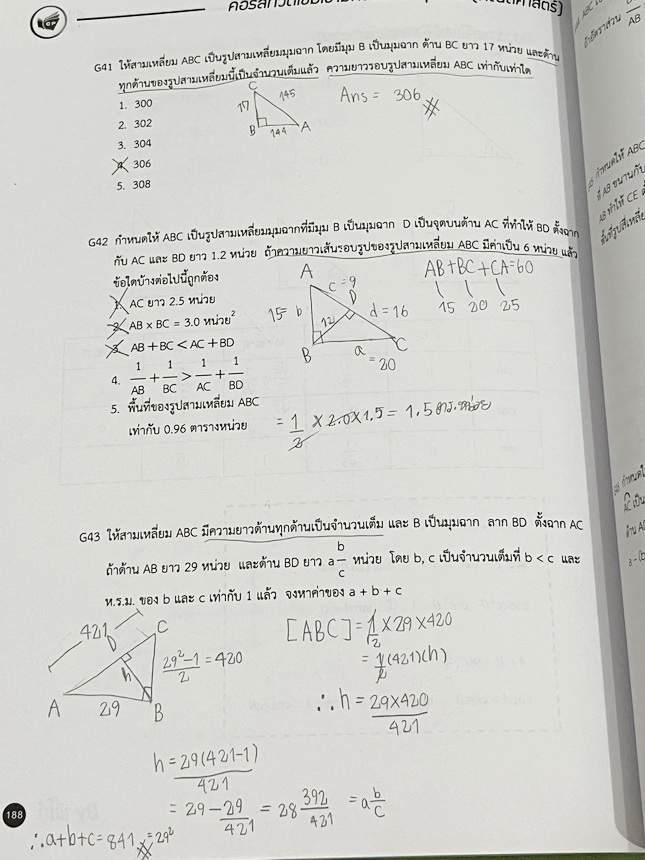 G41 ให้สามเหลี่ยม ABC เป็นรูปสามเหลี่ยมมุมฉาก โดยมีมุม B เป็นมุมฉาก ด้าน BC ยาว 17 หน่วย และด้าน
ทุกด้านของรูปสามเหลี่ยมนี้เป็นจำนวนเต็มแล้ว ความยาวรอบรูปสามเหลี่ยม ABC เท่ากับเท่าใด
1. 300
2. 302
3. 304
4. 306
5. 308
C
17
145
B
144
A
Ans = 306
G42 กำหนดให้ ABC เป็นรูปสามเหลี่ยมมุมฉากที่มีมุม B เป็นมุมฉาก D เป็นจุดบนด้าน AC ที่ทำให้ BD ตั้งฉาก
กับ AC และ BD ยาว 1.2 หน่วย ถ้าความยาวเส้นรอบรูปของสามเหลี่ยม ABC มีค่าเป็น 6 หน่วย แล้ว
ข้อใดบ้างต่อไปนี้ถูกต้อง
1. AC ยาว 2.5 หน่วย
2. AB x BC = 3.0 หน่วย²
3. AB + BC < AC + BD
4. 1/AB + 1/BC > 1/AC + 1/BD
5. พื้นที่ของรูปสามเหลี่ยม ABC
เท่ากับ 0.96 ตารางหน่วย
A
c = 9
D
15 = b
12
d = 16
B
a = 20
C
AB + BC + CA = 60
15 20 25
= 1/2 × 2.0 × 1.5 = 1.5 ตร.หน่วย
G43 ให้สามเหลี่ยม ABC มีความยาวด้านทุกด้านเป็นจำนวนเต็ม และ B เป็นมุมฉาก ลาก BD ตั้งฉาก AC
ถ้าด้าน AB ยาว 29 หน่วย และด้าน BD ยาว a b/c หน่วย โดย b, c เป็นจำนวนเต็มที่ b < c และ
ห.ร.ม. ของ b และ c เท่ากับ 1 แล้ว จงหาค่าของ a + b + c
421
D
C
h
29²-1/2 = 420
A
29
B
[ABC] = 1/2 × 29 × 420
= 1/2 (421)(h)
∴ h = 29×420/421
h = 29(421-1)/421
= 29 - 29/421 = 28 392/421 = a b/c
∴ a+b+c = 841 = 29²
188